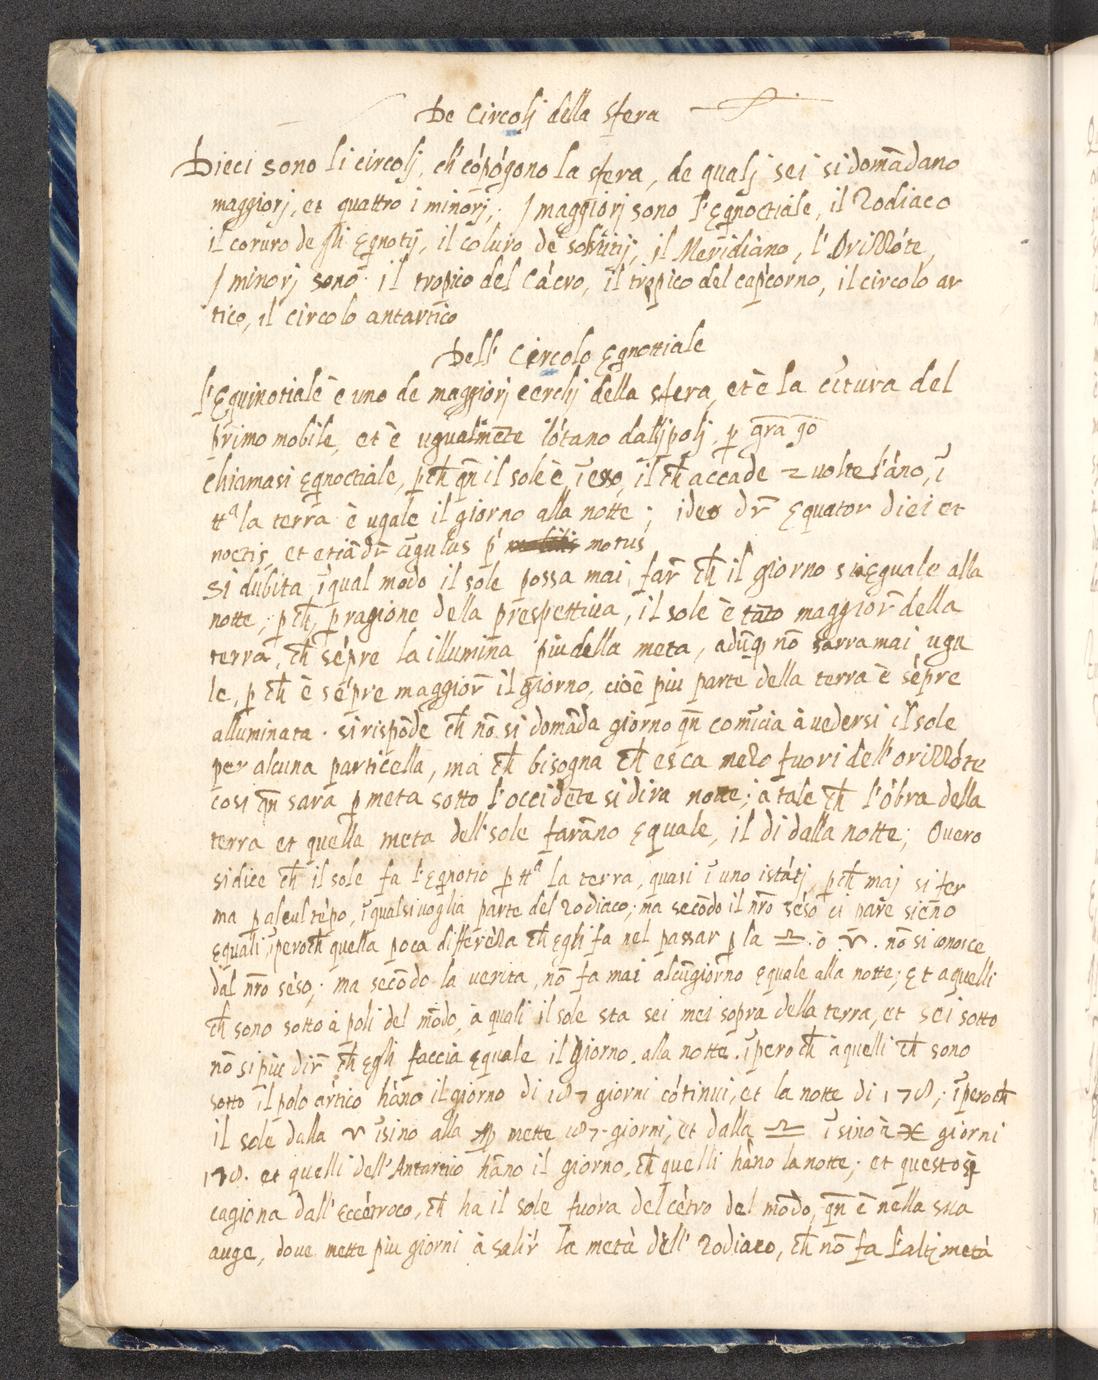 De Circolj della sfera
Dieci sono li circolj, ch' cópógono la sfera, de qualj sei si domādano
maggiorj, et quattro i minorj; I maggiorj sono l'Eqnoctiale, il Zodiaco
il coruro de gli Eqnotij, il coluro de solstitij, il Meridiano, l'Orizzóte,
I minorj sono il tropico del Cácro, il tropico del capcorno, il circolo ar
tico, il circolo antartico
Dell' Circolo Eqnottiale
l'Equinotiale è uno de maggiorj cerchj della sfera, et è la cītura del
primo mobile, et è ugualmēte lótano dallj polj, p
chiamasi Eqnoctiale, p ch qn il sole è ī esso, il ch accade 2 volte l'áno, ī
ttª la terra è ugale il giorno alla notte; ideo dr Equator diei et
noctis, et etiā dr cīgulus p' motus
Si dubita ī qual modo il sole possa mai far ch il giorno sia eguale alla
notte, p ch, p ragione della prespettiua, il sole è tāto maggior della
terra, ch sépre la illumina piu della meta, adūq nō sarra mai ugu
le, p ch è sépre maggior il giorno, cioè piu parte della terra è sépre
alluminata. si rispōde ch nō si domāda giorno qn comīcia à uedersi il sole
per alcuna particella, ma ch bisogna ch esca mezo fuori dell'orizzóte
cosi qn sara p meta sotto l'occidēte si dira notte; a tale ch l'óbra della
terra et quella meta dell'sole farāno Equale, il di dalla notte; Ouero
si dice ch il sole fa l'Eqnotio p ttª la terra, quasi ī uno istátj, p ch maj si fer
ma p alcul tépo, ī qualsiuoglia parte del Zodiaco; ma secōdo il nro séso ci pare sieno
Equali, īpero ch quella poca differēza ch egli fa nel passar p la ♎ ò ♈. nō si conosce
dal nro séso; ma secōdo la uerita, nō fa mai alcū giorno Equale alla notte; Et a quelli
ch sono sotto à poli del mōdo, à quali il sole sta sei mesi sopra della terra, et sei sotto
nō si piu dir ch egli faccia Equale il giorno alla notte. īpero ch à quelli ch sono
sotto il polo ártico háno il giorno di 187 giorni cótinui, et la notte di 178; īpero ch
il sole dalla ♈ īsino alla ♍ mette 187 giorni, et dalla ♎ īsino à ♓ giorni
178. et quelli dell'Antartico hāno il giorno, ch quelli háno la notte; et questo si
cagiona dall'Eccētroco, ch ha il sole fuora del cétro del mōdo, qn è nella sua
auge, doue mette piu giorni à salir la metà dell' Zodiaco, ch nō fa l'alt metà